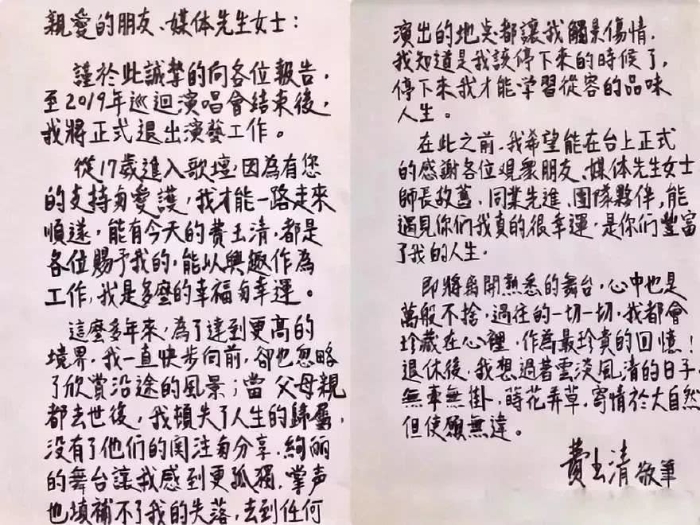 親愛的朋友、媒体先生女士：
謹於此誠摯的向各位報告，
至2019年巡迴演唱會結束後，
我將正式退出演藝工作。
從17歲進入歌壇，因為有您
的支持与愛護，我才能一路走來
順遂，能有今天的費玉清，都是
各位賜予我的，能以興趣作為
工作，我是多麼的幸福与幸運。
這麼多年來，為了達到更高的
境界，我一直快步向前，卻也忽略
了欣賞沿途的風景；當父母親
都去世後，我頓失了人生的歸屬，
没有了他們的関注与分享，絢麗
的舞台讓我感到更孤獨，掌声
也填補不了我的失落，去到任何
演出的地点都讓我觸景傷情，
我知道是我該停下來的時候了，
停下來我才能学習從容的品味
人生。
在此之前，我希望能在台上正式
的感謝各位观衆朋友、媒体先生女士
師長故舊、同業先進、團隊夥伴，能
遇見你們我真的很幸運，是你們豐富
了我的人生。
即將離開熟悉的舞台，心中也是
萬般不捨，過往的一切一切，我都會
珍藏在心裡，作為最珍貴的回憶！
退休後，我想過著雲淡風清的日子，
無牽無掛，時花弄草，寄情於大自然
但使願無違。
費玉清 敬筆